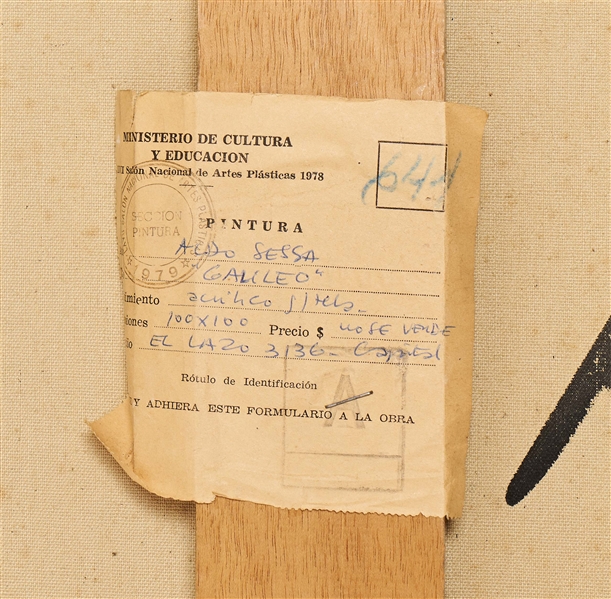 MINISTERIO DE CULTURA
Y EDUCACION
Salón Nacional de Artes Plásticas 1978
644
SECCION
PINTURA
1979
PINTURA
ALDO SESSA
"GALILEO"
imiento acrílico s/tela.
iones 100X100 Precio $ NO SE VENDE
io EL LAZO 3136 - Capital
Rótulo de Identificación
Y ADHIERA ESTE FORMULARIO A LA OBRA
A